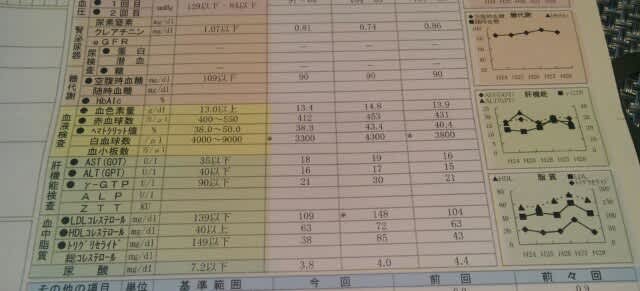 血圧 ● 1回目 mmHg 129以下・84以下
● 2回目
腎泌尿器 尿素窒素 mg/dl
クレアチニン mg/dl 1.07以下 0.81 0.74 0.86
eGFR
尿検査 ● 蛋白 — — —
潜血
● 糖 — — —
糖代謝 ● 空腹時血糖 mg/dl 109以下 90 90 90
随時血糖 mg/dl
● HbAlc %
血液検査 ● 血色素量 g/dl 13.0以上 13.4 14.8 13.9
● 赤血球数 400～550 412 453 431
● ヘマトクリット値 % 38.0～50.0 38.3 43.4 40.4
白血球数 4000～9000 * 3300 4300 * 3800
血小板数
肝機能検査 ● AST(GOT) U/l 35以下 18 19 16
● ALT(GPT) U/l 40以下 16 17 15
● γ-GTP U/l 90以下 21 30 21
ALP U/l
ZTT KU
血中脂質 ● LDLコレステロール mg/dl 139以下 109 * 148 104
● HDLコレステロール mg/dl 40以上 63 72 63
● トリグリセライド mg/dl 149以下 38 85 43
総コレステロール mg/dl
尿酸 mg/dl 7.2以下 3.8 4.0 4.4
その他の項目 単位 基準範囲 今回 前回 前々回
糖代謝
H24 H25 H26 H27 H28
AST(GOT) 肝機能 γ-GTP
ALT(GPT)
H24 H25 H26 H27 H28
HDL 脂質 LDL
トリグリセライド
H24 H25 H26 H27 H28